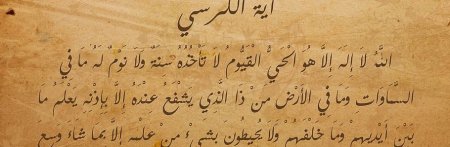 آية الكرسي
اللَّهُ لَا إِلَهَ إِلَّا هُوَ الْحَيُّ الْقَيُّومُ لَا تَأْخُذُهُ سِنَةٌ وَلَا نَوْمٌ لَهُ مَا فِي
السَّمَاوَات وَمَا فِي الْأَرْضِ مَنْ ذَا الَّذِي يَشْفَعُ عِنْدَهُ إِلَّا بِإِذْنِهِ يَعْلَمُ مَا
بَيْنَ أَيْدِيهِمْ وَمَا خَلْفَهُمْ وَلَا يُحِيطُونَ بِشَيْءٍ مِنْ عِلْمِهِ إِلَّا بِمَا شَاءَ وَسِعَ